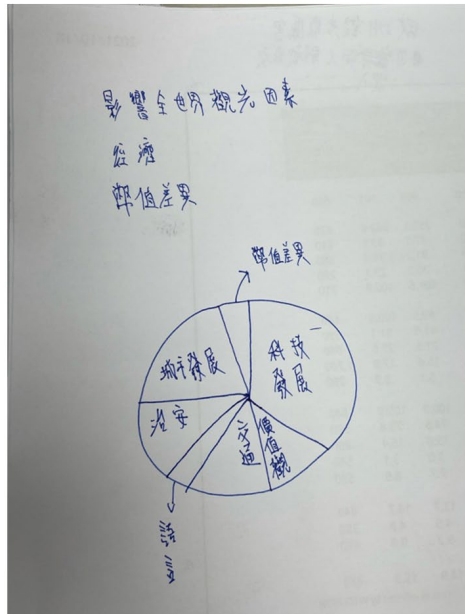 影響全世界觀光因素
經濟
幣值差異
幣值差異
科技
發展
城市發展
治安
交通
價值觀
語言